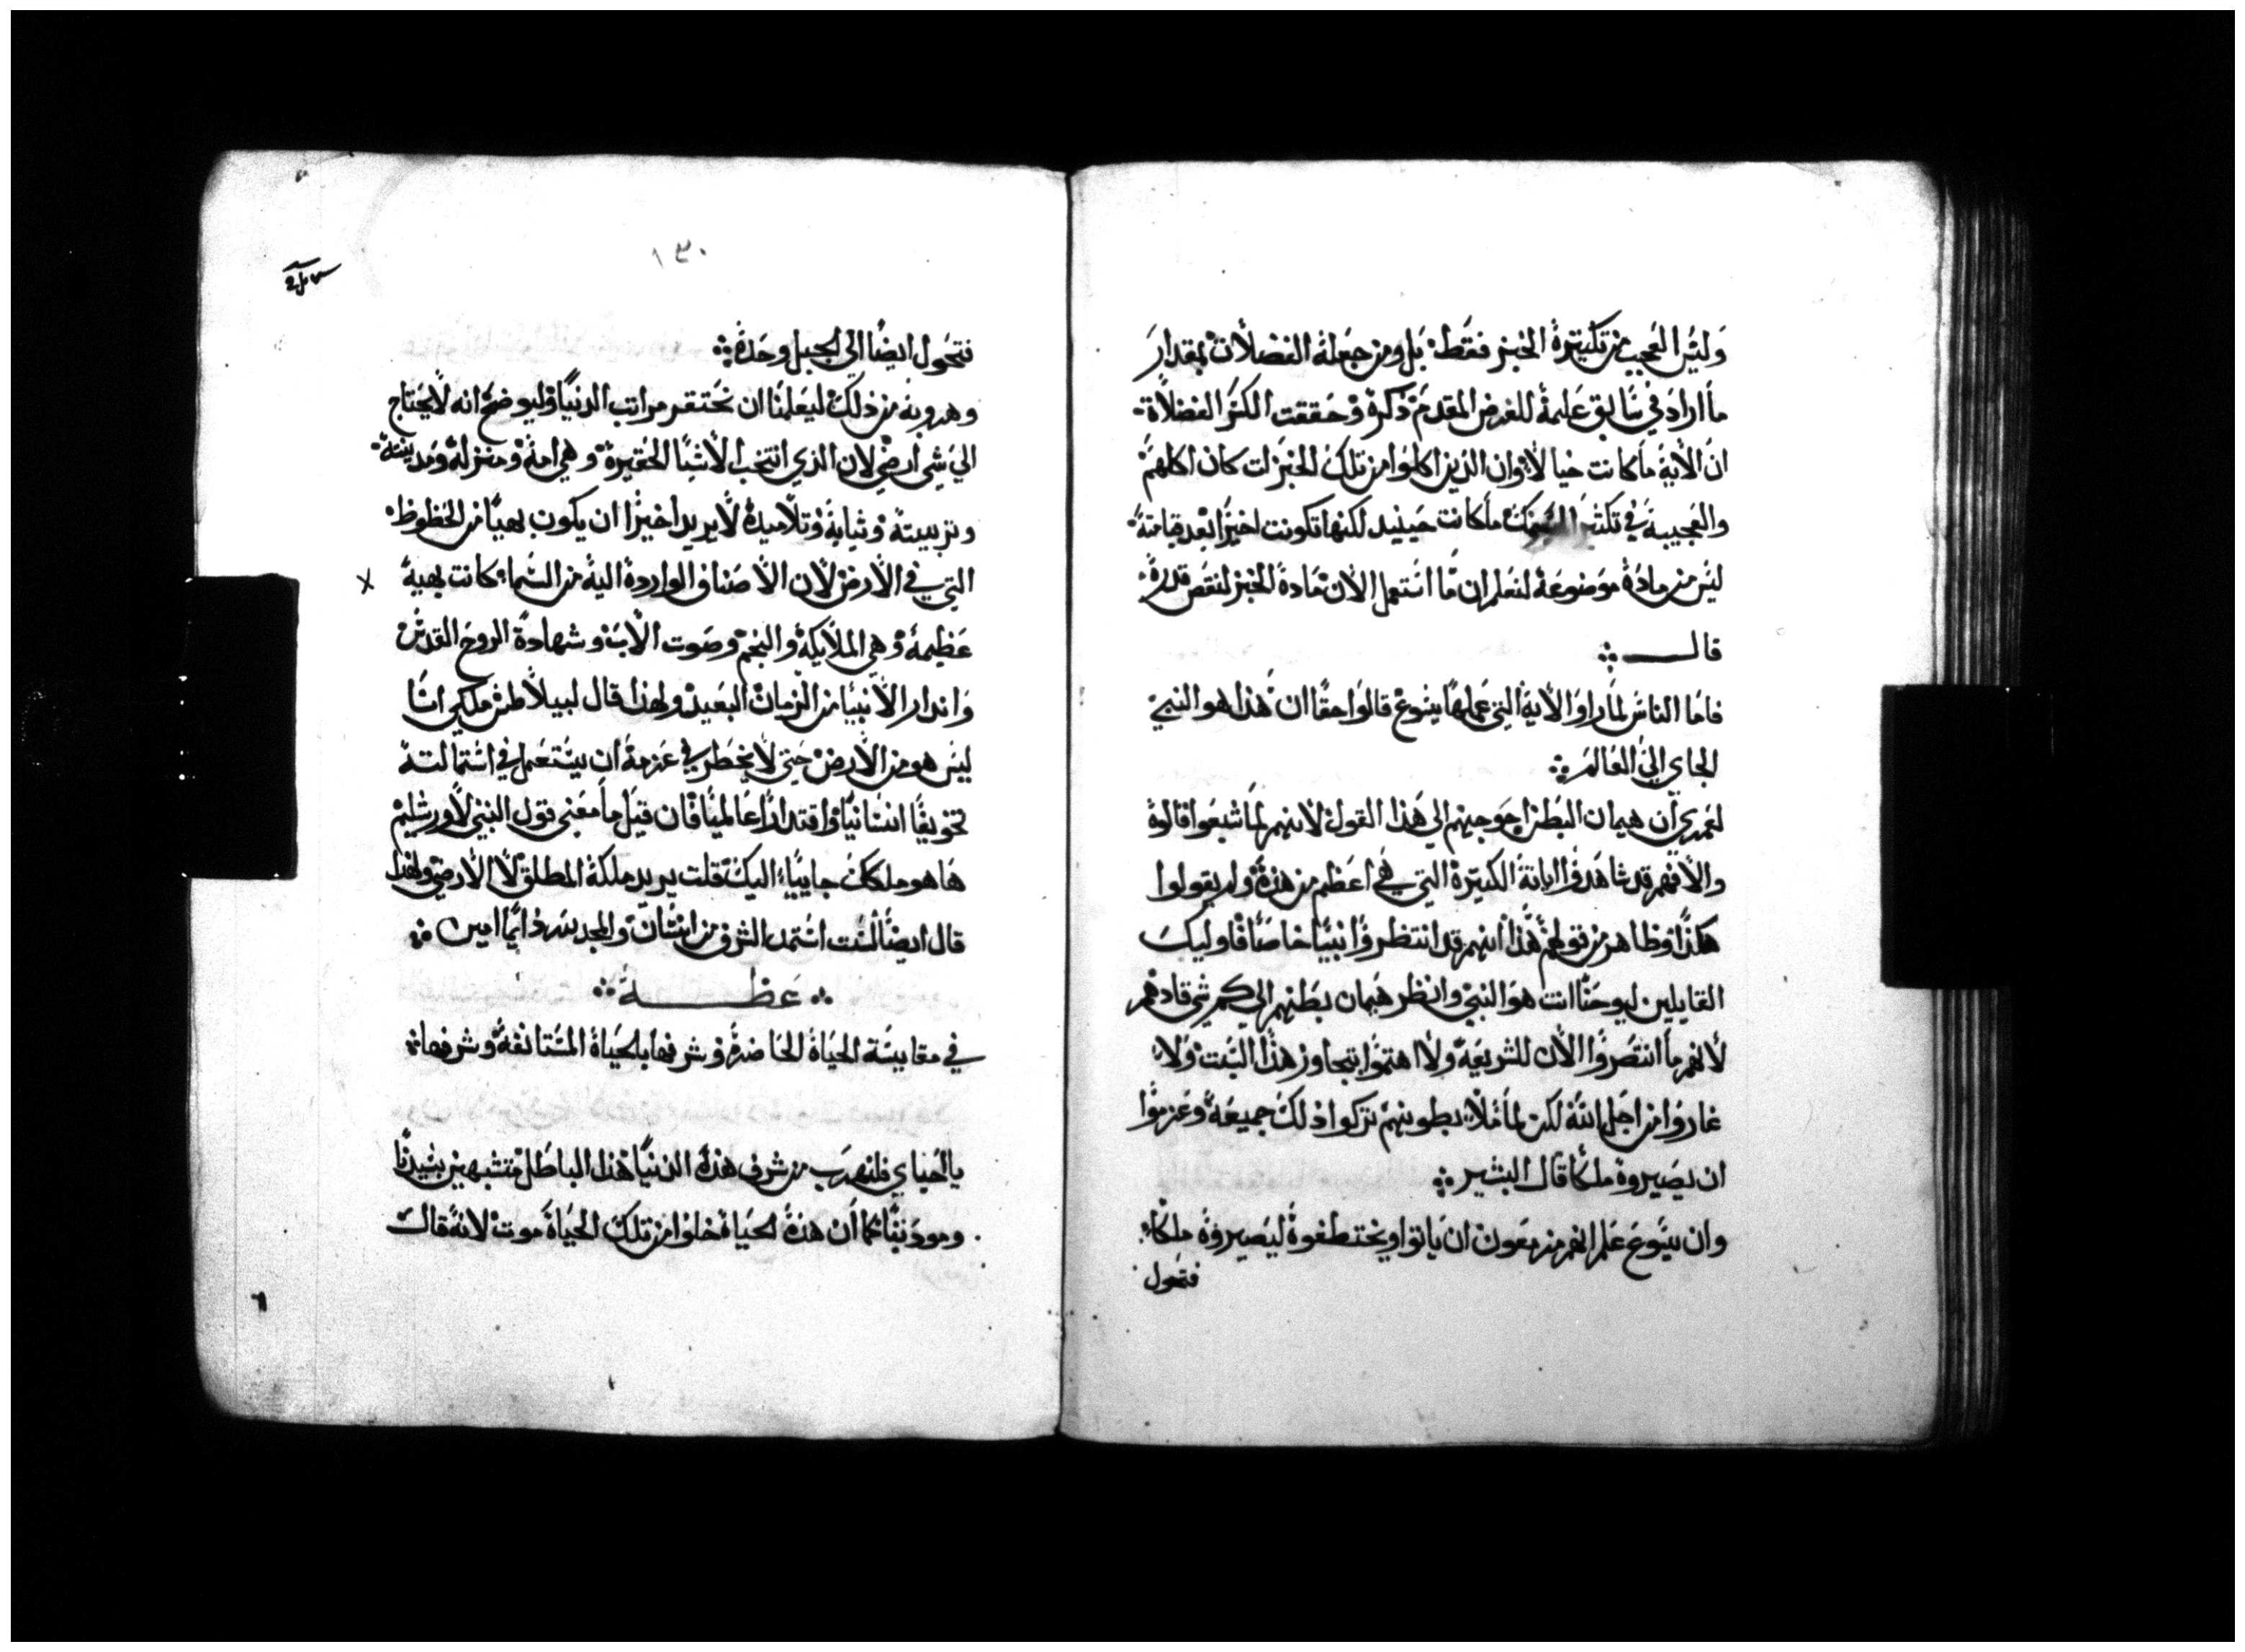 وليس العجيب من تكثيرة الخبز فقط، بل ومن جعلة الفضلات بمقدار
ما اراد في سابق علمة للغرض المقدم ذكرة وحققت الكسر الفضلاة
ان الاية ما كانت خيالاً وان الذين اكلوا من تلك الخبزات كان اكلهم
والعجيبة في تكثير السمك ما كانت حينيد لكنها تكونت اخيراً بعد قيامتة
ليس من مادة موضوعة لنعلم ان ما استعمل الان مادة الخبز لنقص قدرة
قال
فاما الناس لما راوا الاية التي عملها يسوع قالوا حقاً ان هذا هو النبي
الجاي الي العالم
لعمري ان هيمان البطن احوجهم الي هذا القول لانهم لما شبعوا قالوة
والا فهم قد شاهدوا اياتة الكثيرة التي هي اعظم من هذة ولم يقولوا
هكذا وظاهر من قولهم هذا انهم قد انتظروا نبياً خاصاً فاوليك
القايلين ليوحنا انت هو النبي وانظر هيمان بطنهم الي كم شي قادهم
لانهم ما انتصروا الان للشريعة ولا اهتموا بتجاوز هذا السبت ولا
غاروا من اجل الله لكن لما ملا بطونهم تركوا ذلك جميعة وعزموا
ان يصيروة ملكاً قال البشير
وان يسوع علم انهم مزمعون ان ياتوا ويختطفوة ليصيروة ملكاً
فتحول
١٣٠
فتحول ايضاً الي الجبل وحدة
وهروبة من ذلك ليعلمنا ان نحتقر مراتب الدنيا وليوضح انه لا يحتاج
الي شي ارضي لان الذي انتخب الاشيا الحقيرة وهي امة ومنزلة ومدينتة
وتربيتة وثيابة وتلاميذة لا يريد اخيراً ان يكون بهياً من الحظوظ
التي في الارض لان الاصناف الواردة الية من السما كانت بهية
عظيمة وهي الملايكة والنجم وصوت الاب وشهادة الروح القدس
وانذار الانبيا من الزمان البعيد ولهذا قال لبيلاطس ملكي انا
ليس هو من الارض حتي لا يخطر في عزمة ان يستعمل في استمالتة
تخويفاً انسانياً واقتداراً عالمياً فان قيل ما معني قول النبي لاورشليم
ها هو ملكك جايياً اليك قلت يريد ملكة المطلق لا الارضي ولهذا
قال ايضاً لست استمد الشرف من انسان والمجد سرداً يما امين
عظـة
في مقايسة الحياة الحاضرة وشرفها بالحياة المستانفة وشرفها
يا احباي فلنهرب من شرف هذة الدنيا هذا الباطل متشبهين بسيدنا
ومودبنا كما ان هذة الحياة خلوا من تلك الحياة موت لانة قال